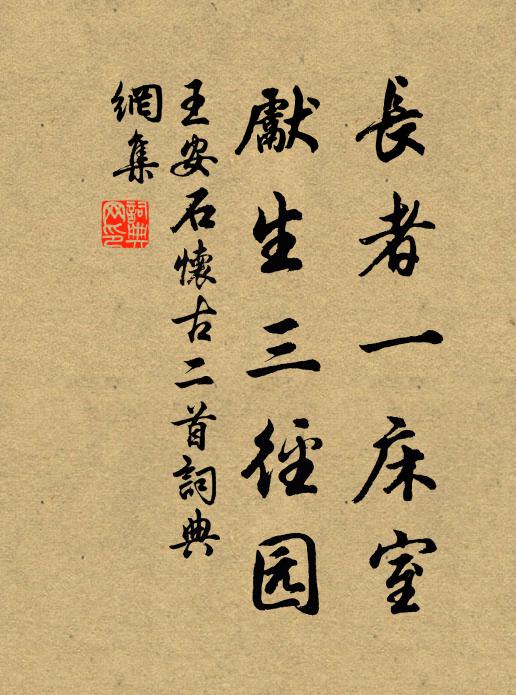 長者一床室
獻生三徑园
王安石懷古二首詞典
網集
詞典
网印